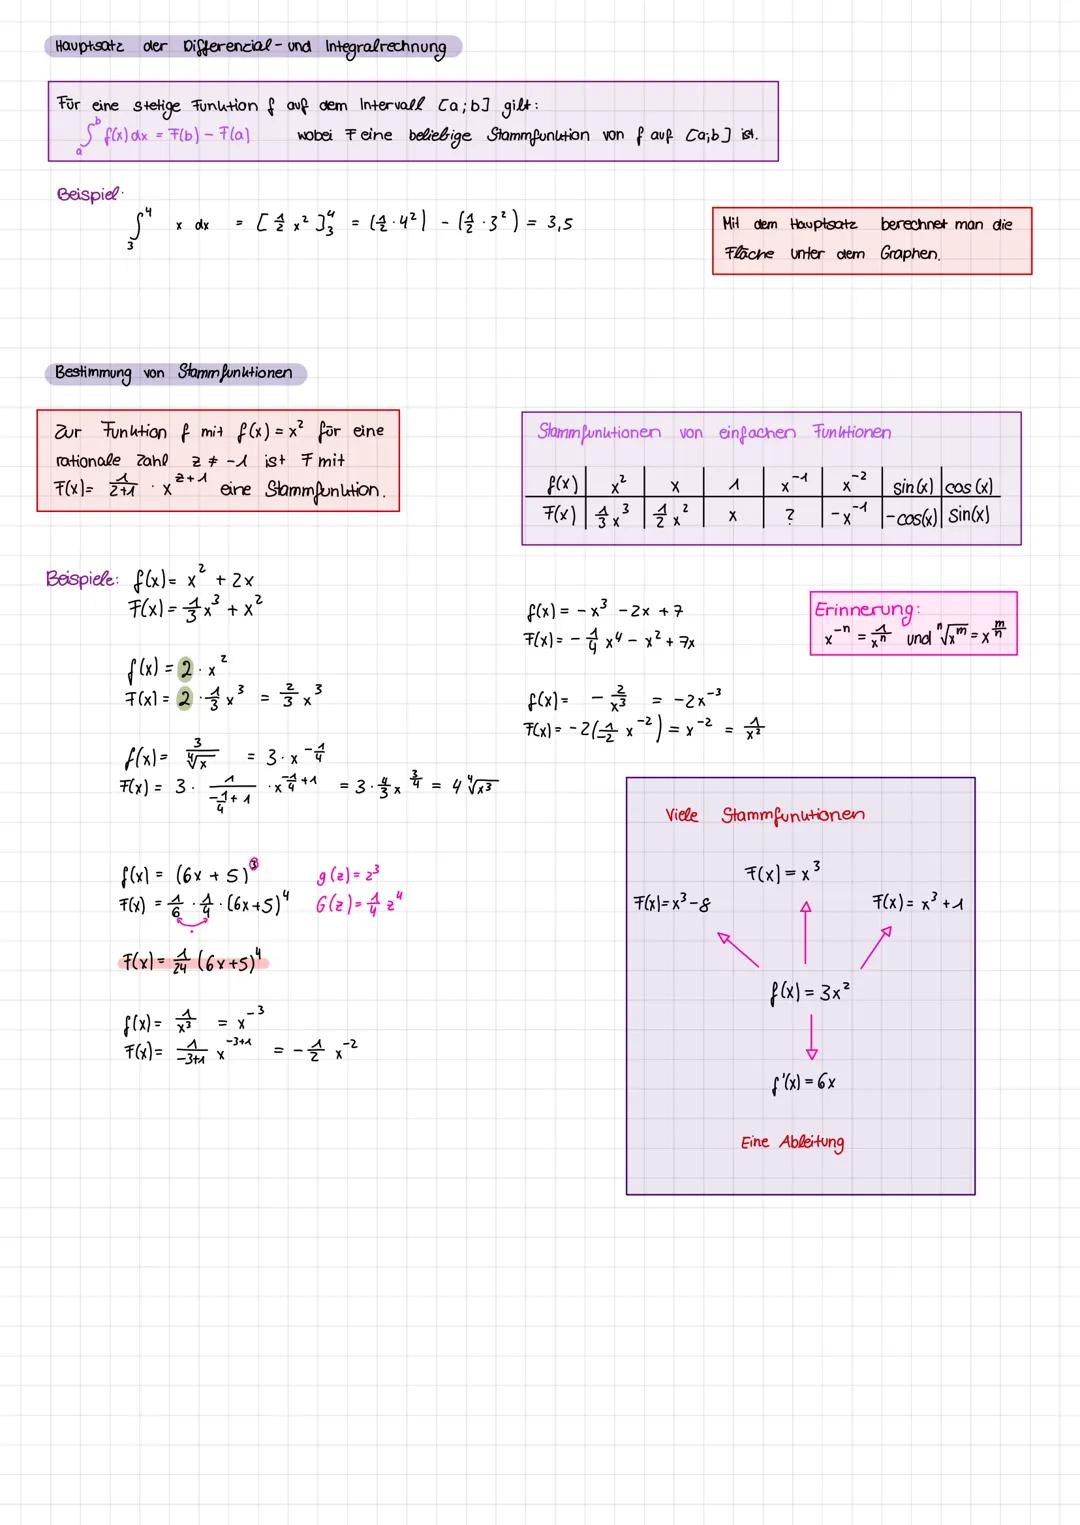 Hauptsatz der Differencial- und Integralrechnung
Für eine stetige Funktion f auf dem Intervall [a;b] gilt:
∫ₐᵇ f(x) dx = F(b) - F(a) wobei F eine beliebige Stammfunktion von f auf [a;b] ist.
Beispiel:
∫₃⁴ x dx = [½ x²]₃⁴ = (½ · 4²) - (½ · 3²) = 3,5
Mit dem Hauptsatz berechnet man die
Fläche unter dem Graphen.
Bestimmung von Stammfunktionen
Zur Funktion f mit f(x) = x² für eine
rationale Zahl z ≠ -1 ist F mit
F(x) = 1/(z+1) · x^(z+1) eine Stammfunktion.
Stammfunktionen von einfachen Funktionen
f(x) | x² | x | 1 | x⁻¹ | x⁻² | sin(x) | cos(x)
F(x) | ⅓ x³ | ½ x² | x | ? | -x⁻¹ | -cos(x) | sin(x)
Beispiele: f(x) = x² + 2x
F(x) = ⅓ x³ + x²
f(x) = 2 · x²
F(x) = 2 · ⅓ x³ = ⅔ x³
f(x) = 3/⁴√x = 3 · x^(-1/4)
F(x) = 3 · 1/(-1/4 + 1) · x^(-1/4 + 1) = 3 · 4/3 x^(3/4) = 4 ⁴√x³
f(x) = (6x + 5)³ g(z) = z³
F(x) = 1/6 · 1/4 · (6x+5)⁴ G(z) = ¼ z⁴
F(x) = 1/24 (6x+5)⁴
f(x) = 1/x³ = x⁻³
F(x) = 1/(-3+1) x^(-3+1) = -½ x⁻²
f(x) = -x³ - 2x + 7
F(x) = -¼ x⁴ - x² + 7x
Erinnerung:
x⁻ⁿ = 1/xⁿ und ⁿ√xᵐ = x^(m/n)
f(x) = -2/x³ = -2x⁻³
F(x) = -2(1/-2 x⁻²) = x⁻² = 1/x²
Viele Stammfunktionen
F(x) = x³
F(x) = x³ - 8 F(x) = x³ + 1
f(x) = 3x²
f'(x) = 6x
Eine Ableitung